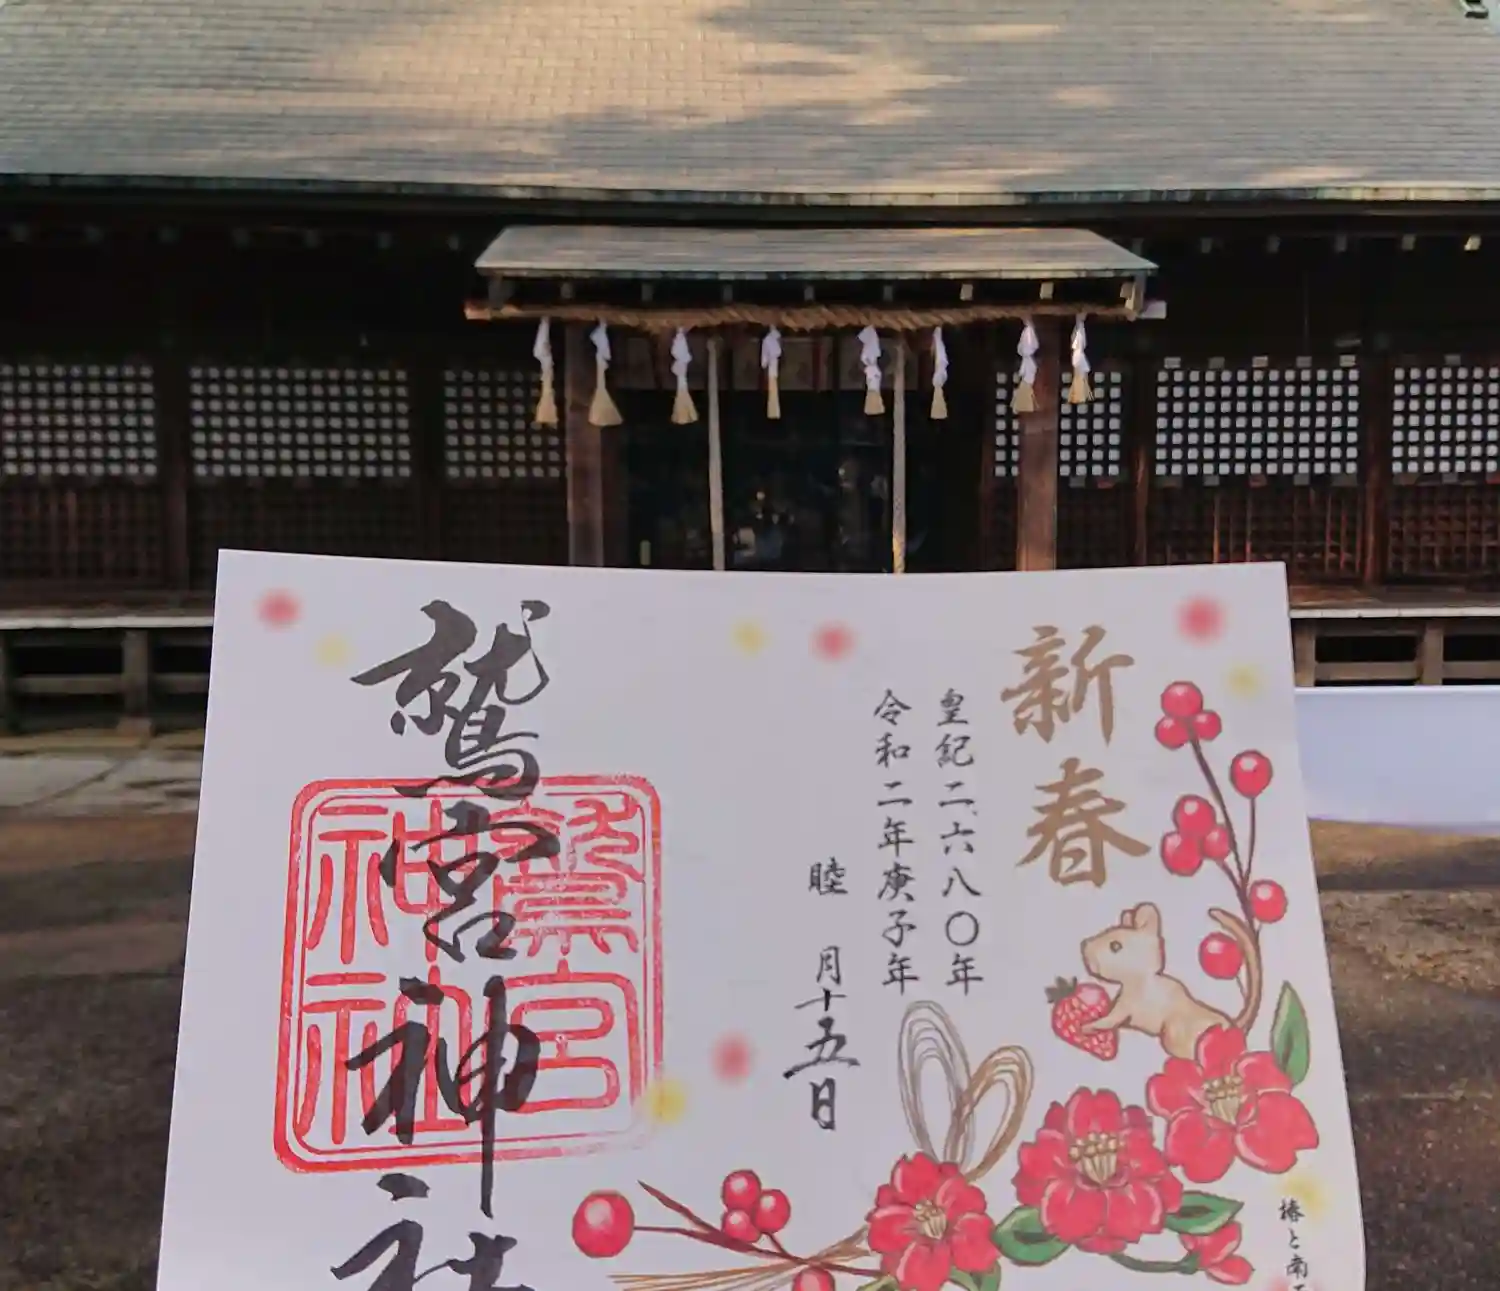 新春
皇紀二六八〇年
令和二年庚子年
睦月十五日
鷲宮神社
鷲宮
神社
椿と南